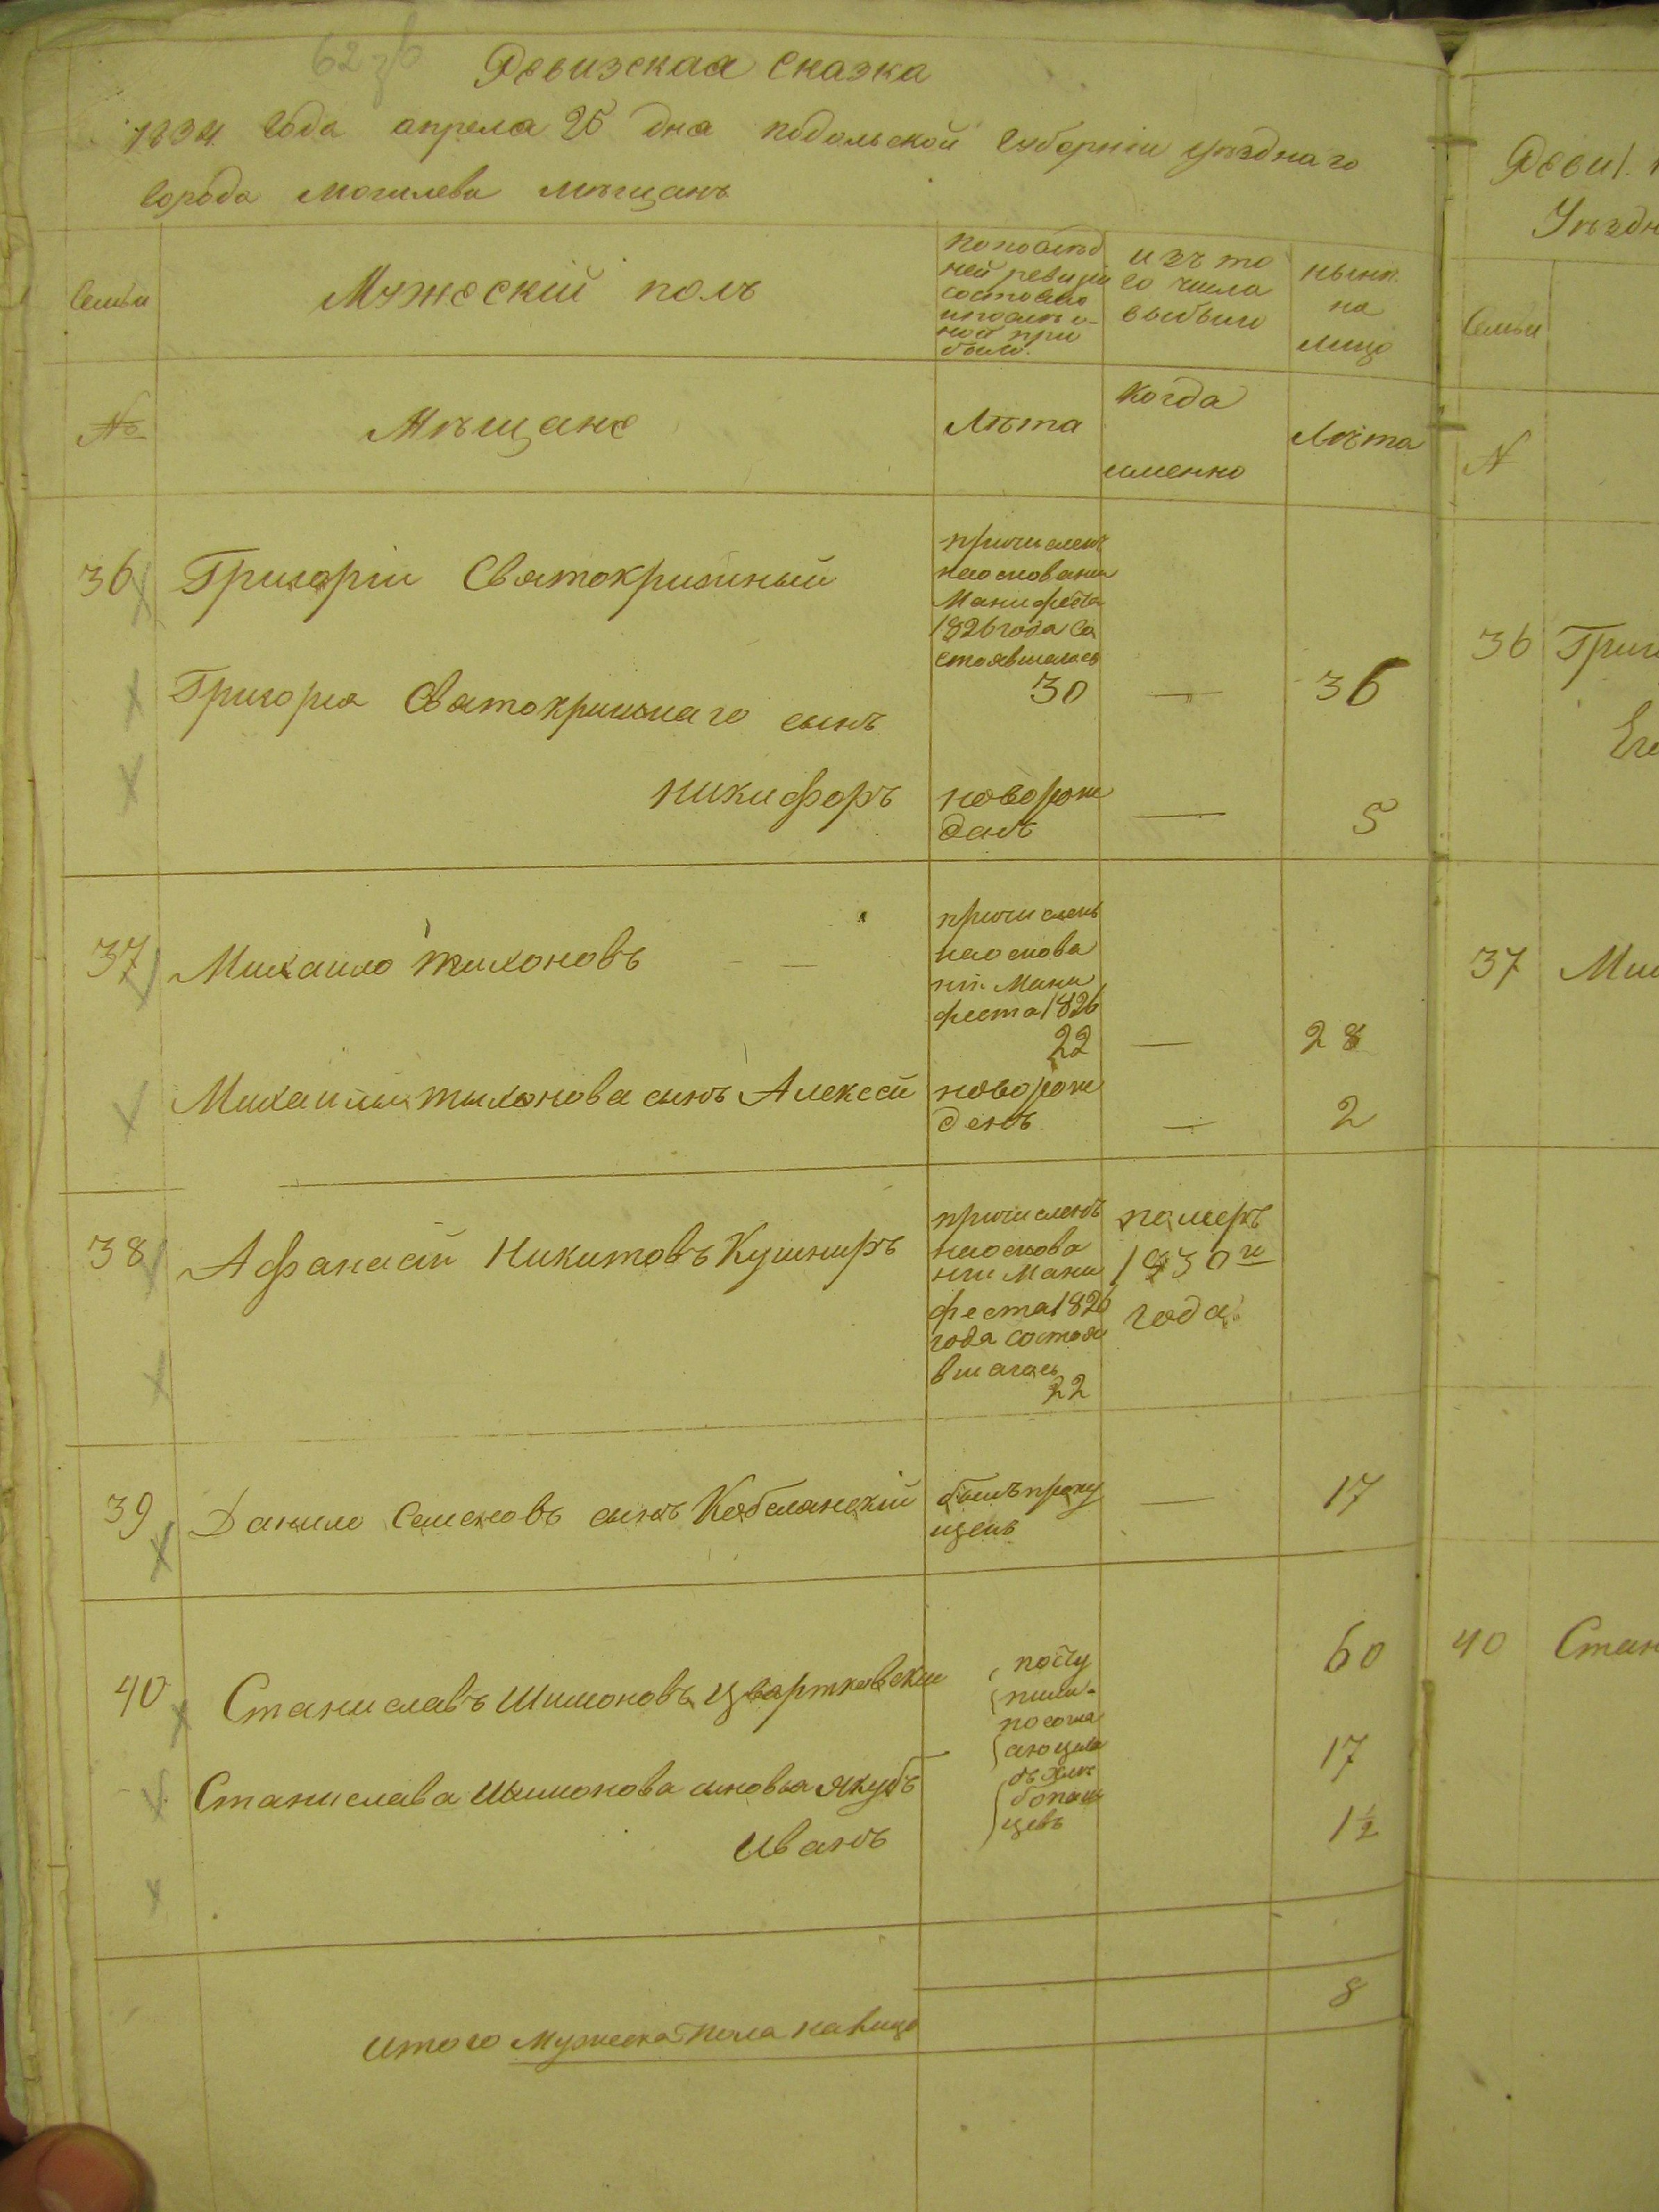 62 зв
Ревизская Сказка
1834 Года апреля 25 дня подольской Губернии уезднаго
Города Могилева Мѣщанъ
Семьи
Мужескій полъ
по послѣд
ней ревизіи
состояло
и послѣ о-
ной при
было.
изъ то
го числа
выбыло
нынѣ
на
лицо
№
Мѣщане
Лѣта
Когда
именно
Лѣта
36 Григоріи Святокришный
причисленъ
на основании
Манифеста
1826 года Со
стоявшагось
30 — 36
Григорія Святокришнаго сынъ
никифоръ
новорож
данъ
— 5
37 Михаило тихоновъ —
причисленъ
на основа
нiи Мани
феста 1826
22 — 28
Михаилы тихонова сынъ Алексей
новорож
денъ
— 2
38 Афанасiй Никитовъ Кушниръ
причисленъ
на основа
нии Мани
феста 1826
года состоя
вшагось
22
померъ
1830 го
года
39 Данило Семеновъ сынъ Кобелянскiй
былъ пропу
щенъ
— 17
40 Станиславъ Шимоновъ Цвартковски
60
Станислава Шимонова сыновья Якубъ
17
Иванъ
1½
посту
пили
Итого Мужеска пола налицо
8
Реви
Уѣздн
Семьи
N
36 Григ
Его
37 Мих
40 Стан